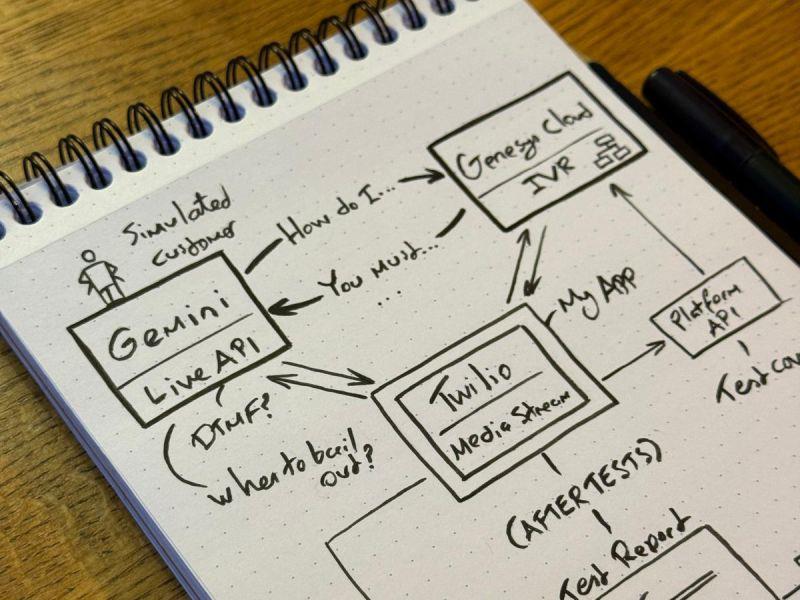 Simulated
customer
Gemini
Live API
DTMF?
when to bail
out?
How do I...
You must...
...
Genesys Cloud
IVR
My App
Twilio
Media Stream
Platform
API
Test
(AFTER TESTS)
Test Report